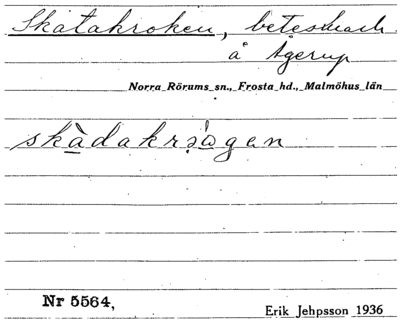 Skatakroken, betesmark
å Ågerup
Norra Rörums sn., Frosta hd., Malmöhus län
Nr 5564,
Erik Jehpsson 1936